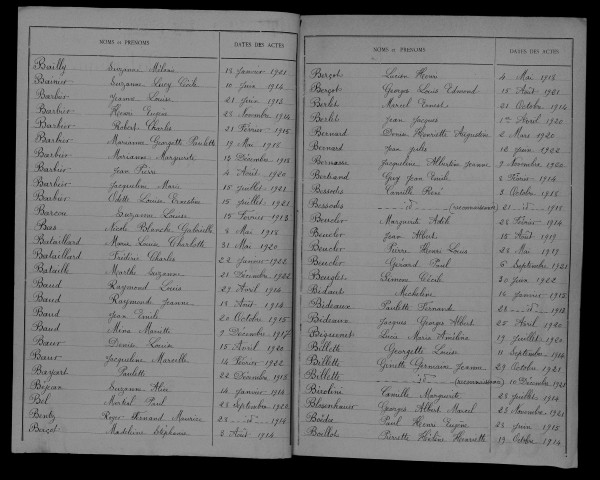 NOMS ET PRÉNOMS DATES DES ACTES
Bailly Suzanne Milona 18 Janvier 1921
Bainier Suzanne Lucy Cécile 10 Juin 1914
Barbier Jeanne Louise 21 Juin 1913
Barbier Henri Eugène 25 Novembre 1914
Barbier Robert Charles 21 Février 1915
Barbier Marianne Georgette Paulette 19 Mai 1915
Barbier Marianne Marguerite 13 Décembre 1918
Barbier Jean Pierre 4 Août 1920
Barbier Jacqueline Marie 15 Juillet 1921
Barbier Odette Louise Ernestine 15 Juillet 1921
Barcon Suzanne Louise 15 Février 1913
Bas Nicole Blanche Gabrielle 8 Mai 1918
Bataillard Marie Louise Charlotte 31 Mai 1920
Bataillard Frédéric Charles 22 Janvier 1922
Bataille Marthe Suzanne 21 Décembre 1922
Baud Raymond Louis 29 Avril 1914
Baud Raymonde Jeanne 18 Août 1914
Baud Jean Emile 20 Octobre 1915
Baud Mona Mariette 9 Décembre 1917
Baur Denise Louise 15 Avril 1920
Baur Jacqueline Marcelle 14 Février 1922
Bayard Paulette 22 Décembre 1918
Suzanne Alice 14 Janvier 1914
Bel Martial Paul 28 Septembre 1922
Roger Fernand Maurice 28 d° 1914
Madeleine Stéphanie 3 Août 1914
NOMS ET PRÉNOMS DATES DES ACTES
Bergot Lucien Henri 4 Mai 1918
Bergot Georges Louis Edmond 15 Août 1921
Berlet Marcel Ernest 21 Octobre 1914
Berlet Jean Jacques 1er Avril 1920
Bernard Denise Henriette Augustine 2 Mars 1920
Bernard Jean Jules 16 Juin 1922
Bernasse Jacqueline Albertine Jeanne 9 Novembre 1920
Bertrand Guy Jean Emile 8 Février 1914
Bessods Camille René 3 Octobre 1918
Bessods d° (reconnaissance) 21 d° 1918
Boucler Marguerite 28 Février 1914
Boucler Jean Albert 15 Août 1919
Boucler Pierre Henri Louis 28 Mai 1917
Boucler Gérard Paul 5 Septembre 1921
Simone Cécile 30 Juin 1922
Micheline 14 Janvier 1913
Bideaux Paulette Fernande 28 d° 1913
Bideaux Jacques Georges Albert 25 Avril 1920
Lucie Marie 19 Juillet 1920
Billotte Georgette Louise 11 Septembre 1914
Billotte Ginette Germaine Jeanne 29 Octobre 1921
Billotte d° (reconnaissance) 10 Décembre 1921
Camille Marguerite 28 Juillet 1914
Georges Albert Marcel 23 Novembre 1921
Paul Henri Eugène 28 Juin 1915
Boillot Pierrette Hélène Henriette 19 Octobre 1914